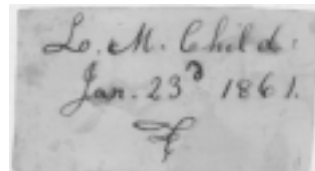 L. M. Child.
Jan. 23ᵈ 1861.